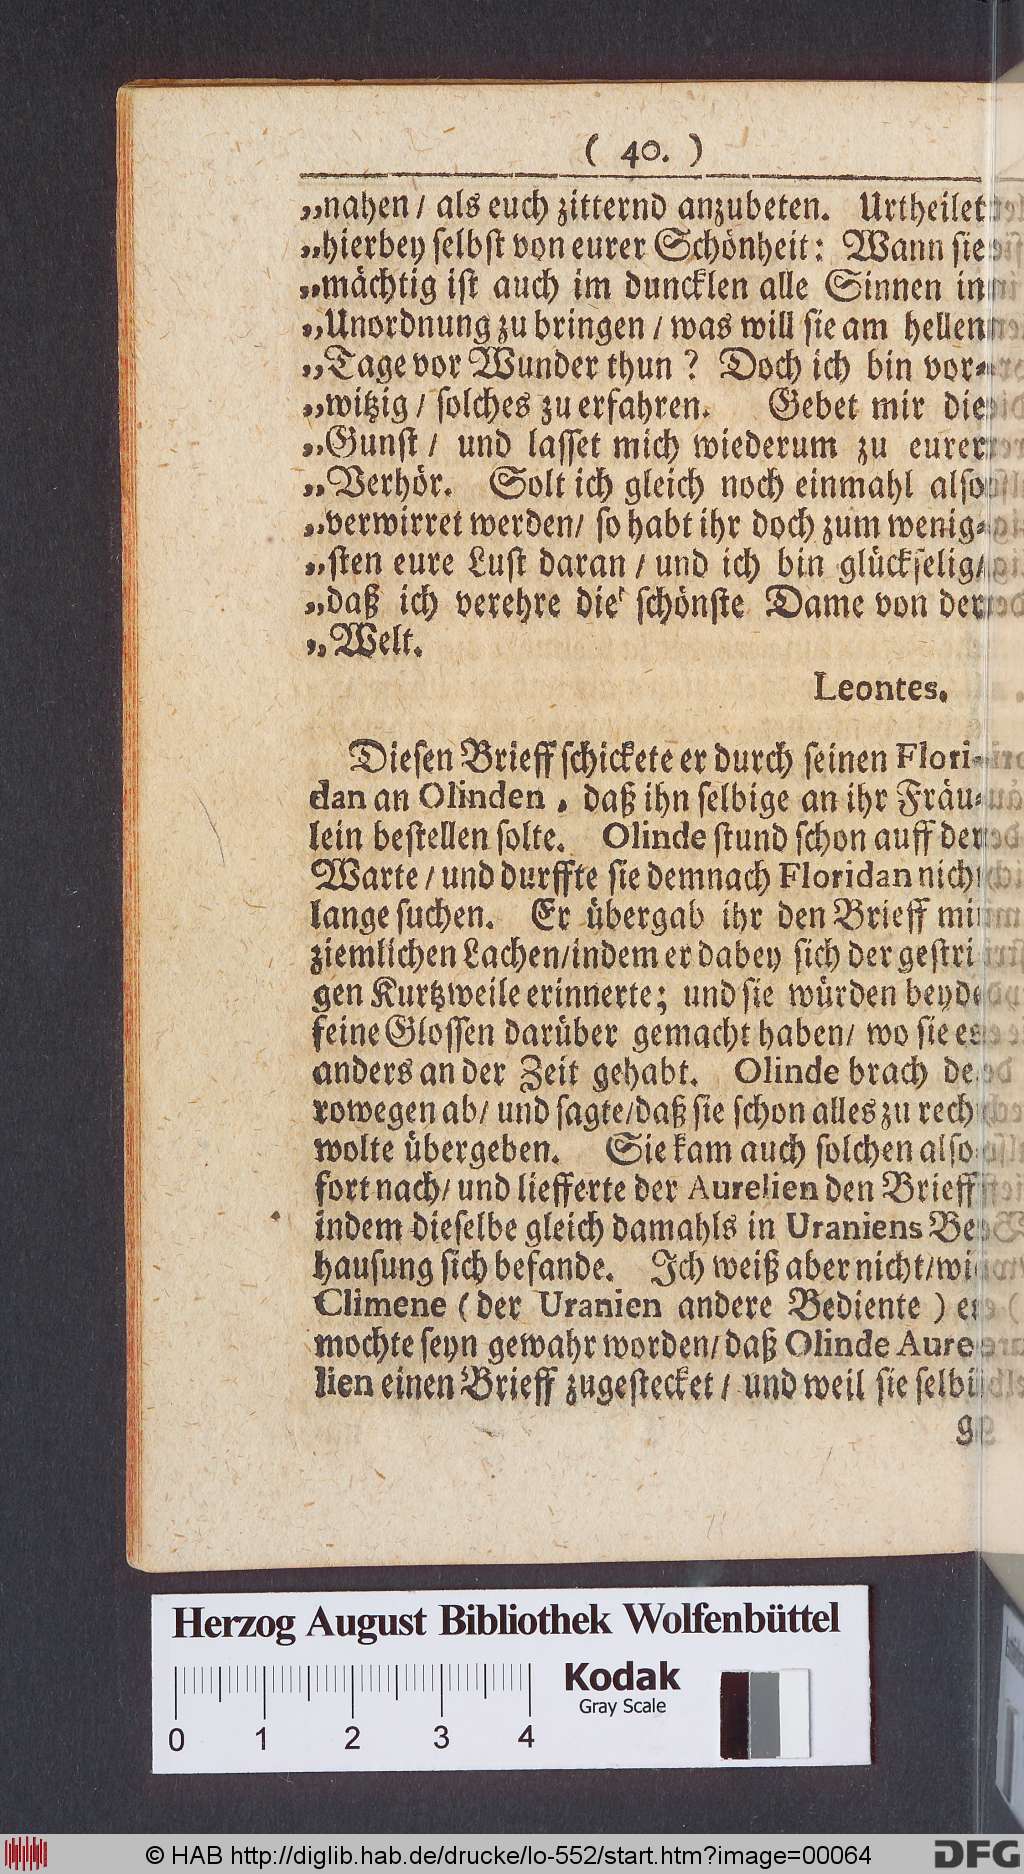 ( 40. )
„nahen / als euch zitternd anzubeten. Urtheilet
„hierbey selbst von eurer Schönheit: Wann sie
„mächtig ist auch im duncklen alle Sinnen in
„Unordnung zu bringen / was will sie am hellen
„Tage vor Wunder thun ? Doch ich bin vor-
„witzig / solches zu erfahren. Gebet mir die
„Gunst / und lasset mich wiederum zu eurer
„Verhör. Solt ich gleich noch einmahl also
„verwirret werden/ so habt ihr doch zum wenig-
„sten eure Lust daran / und ich bin glückselig/
„daß ich verehre die schönste Dame von der
„Welt.
Leontes.
Diesen Brieff schickete er durch seinen Flori-
dan an Olinden , daß ihn selbige an ihr Fräu-
lein bestellen solte. Olinde stund schon auff der
Warte / und durffte sie demnach Floridan nicht
lange suchen. Er übergab ihr den Brieff mit
ziemlichen Lachen/indem er dabey sich der gestri
gen Kurtzweile erinnerte; und sie würden beyde
feine Glossen darüber gemacht haben/ wo sie es
anders an der Zeit gehabt. Olinde brach de
rowegen ab/ und sagte/daß sie schon alles zu recht
wolte übergeben. Sie kam auch solchen also
fort nach/ und liefferte der Aurelien den Brieff
indem dieselbe gleich damahls in Uraniens Be
hausung sich befande. Ich weiß aber nicht/wie
Climene ( der Uranien andere Bediente ) es
mochte seyn gewahr worden/daß Olinde Aure
lien einen Brieff zugestecket / und weil sie selbi
ge
Herzog August Bibliothek Wolfenbüttel
Kodak
Gray Scale
0 1 2 3 4
© HAB http://diglib.hab.de/drucke/lo-552/start.htm?image=00064
DFG